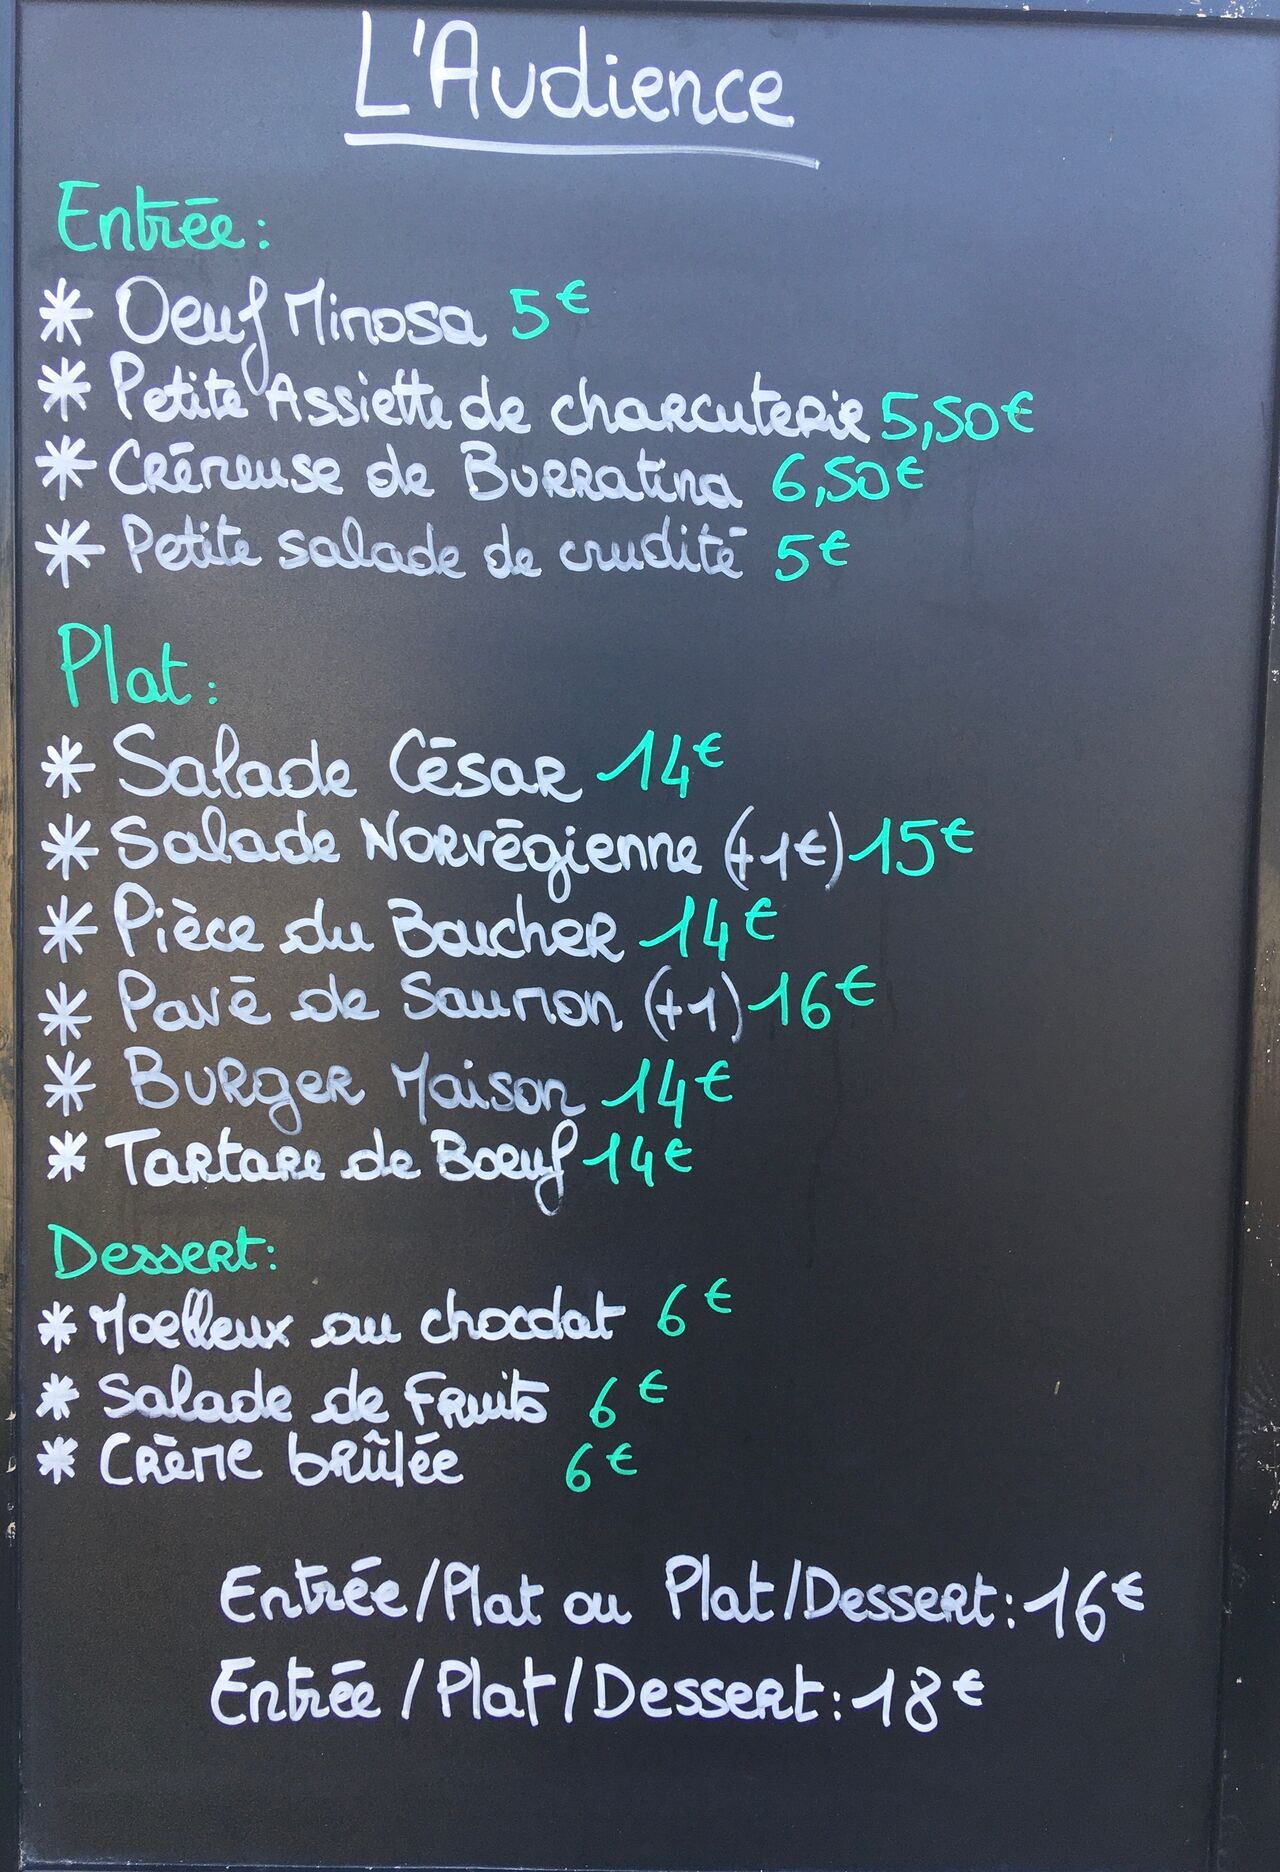 L'Audience
Entrée:
* Oeuf Mimosa 5€
* Petite Assiette de charcuterie 5,50€
* Crémeuse de Burratina 6,50€
* Petite salade de crudité 5€
Plat:
* Salade César 14€
* Salade Norvégienne (+1€) 15€
* Pièce du Boucher 14€
* Pavé de Saumon (+1) 16€
* Burger Maison 14€
* Tartare de Boeuf 14€
Dessert:
* Moelleux au chocolat 6€
* Salade de Fruits 6€
* Crème brûlée 6€
Entrée/Plat ou Plat/Dessert: 16€
Entrée/Plat/Dessert: 18€